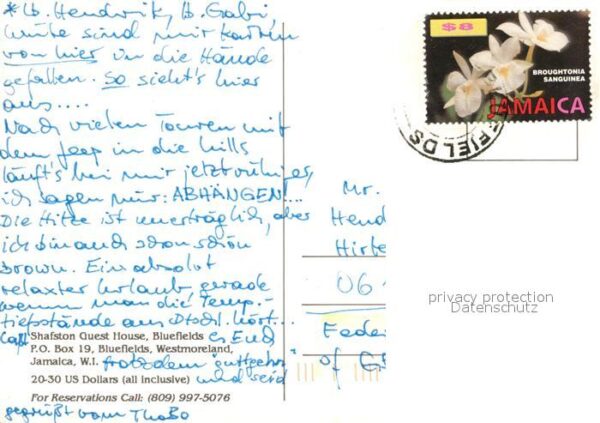 *Lb. Hendrik, lb. Gabi,
heute sind mir Karten
von hier in die Hände
gefallen. So sieht's hier
aus....
Nach vielen Touren mit
dem Jeep in die hills
läuft's bei mir jetzt ruhiger,
ich sagen nur: ABHÄNGEN!...
Die Hitze ist unerträglich, aber
ich bin auch schon schön
brown. Ein absolut
relaxter Urlaub, gerade
wenn man die Temp.-
tiefstände aus Dtschl. hört...
Laßt es Euch
trotzdem "gutgehn"
und seid
gegrüßt vom ThoBo
Shafston Guest House, Bluefields
P.O. Box 19, Bluefields, Westmoreland,
Jamaica, W.I.
20-30 US Dollars (all inclusive)
For Reservations Call: (809) 997-5076
$8
BROUGHTONIA
SANGUINEA
JAMAICA
EFIELDS
Mr.
Hend
Hirte
06
Feder
of G
privacy protection
Datenschutz